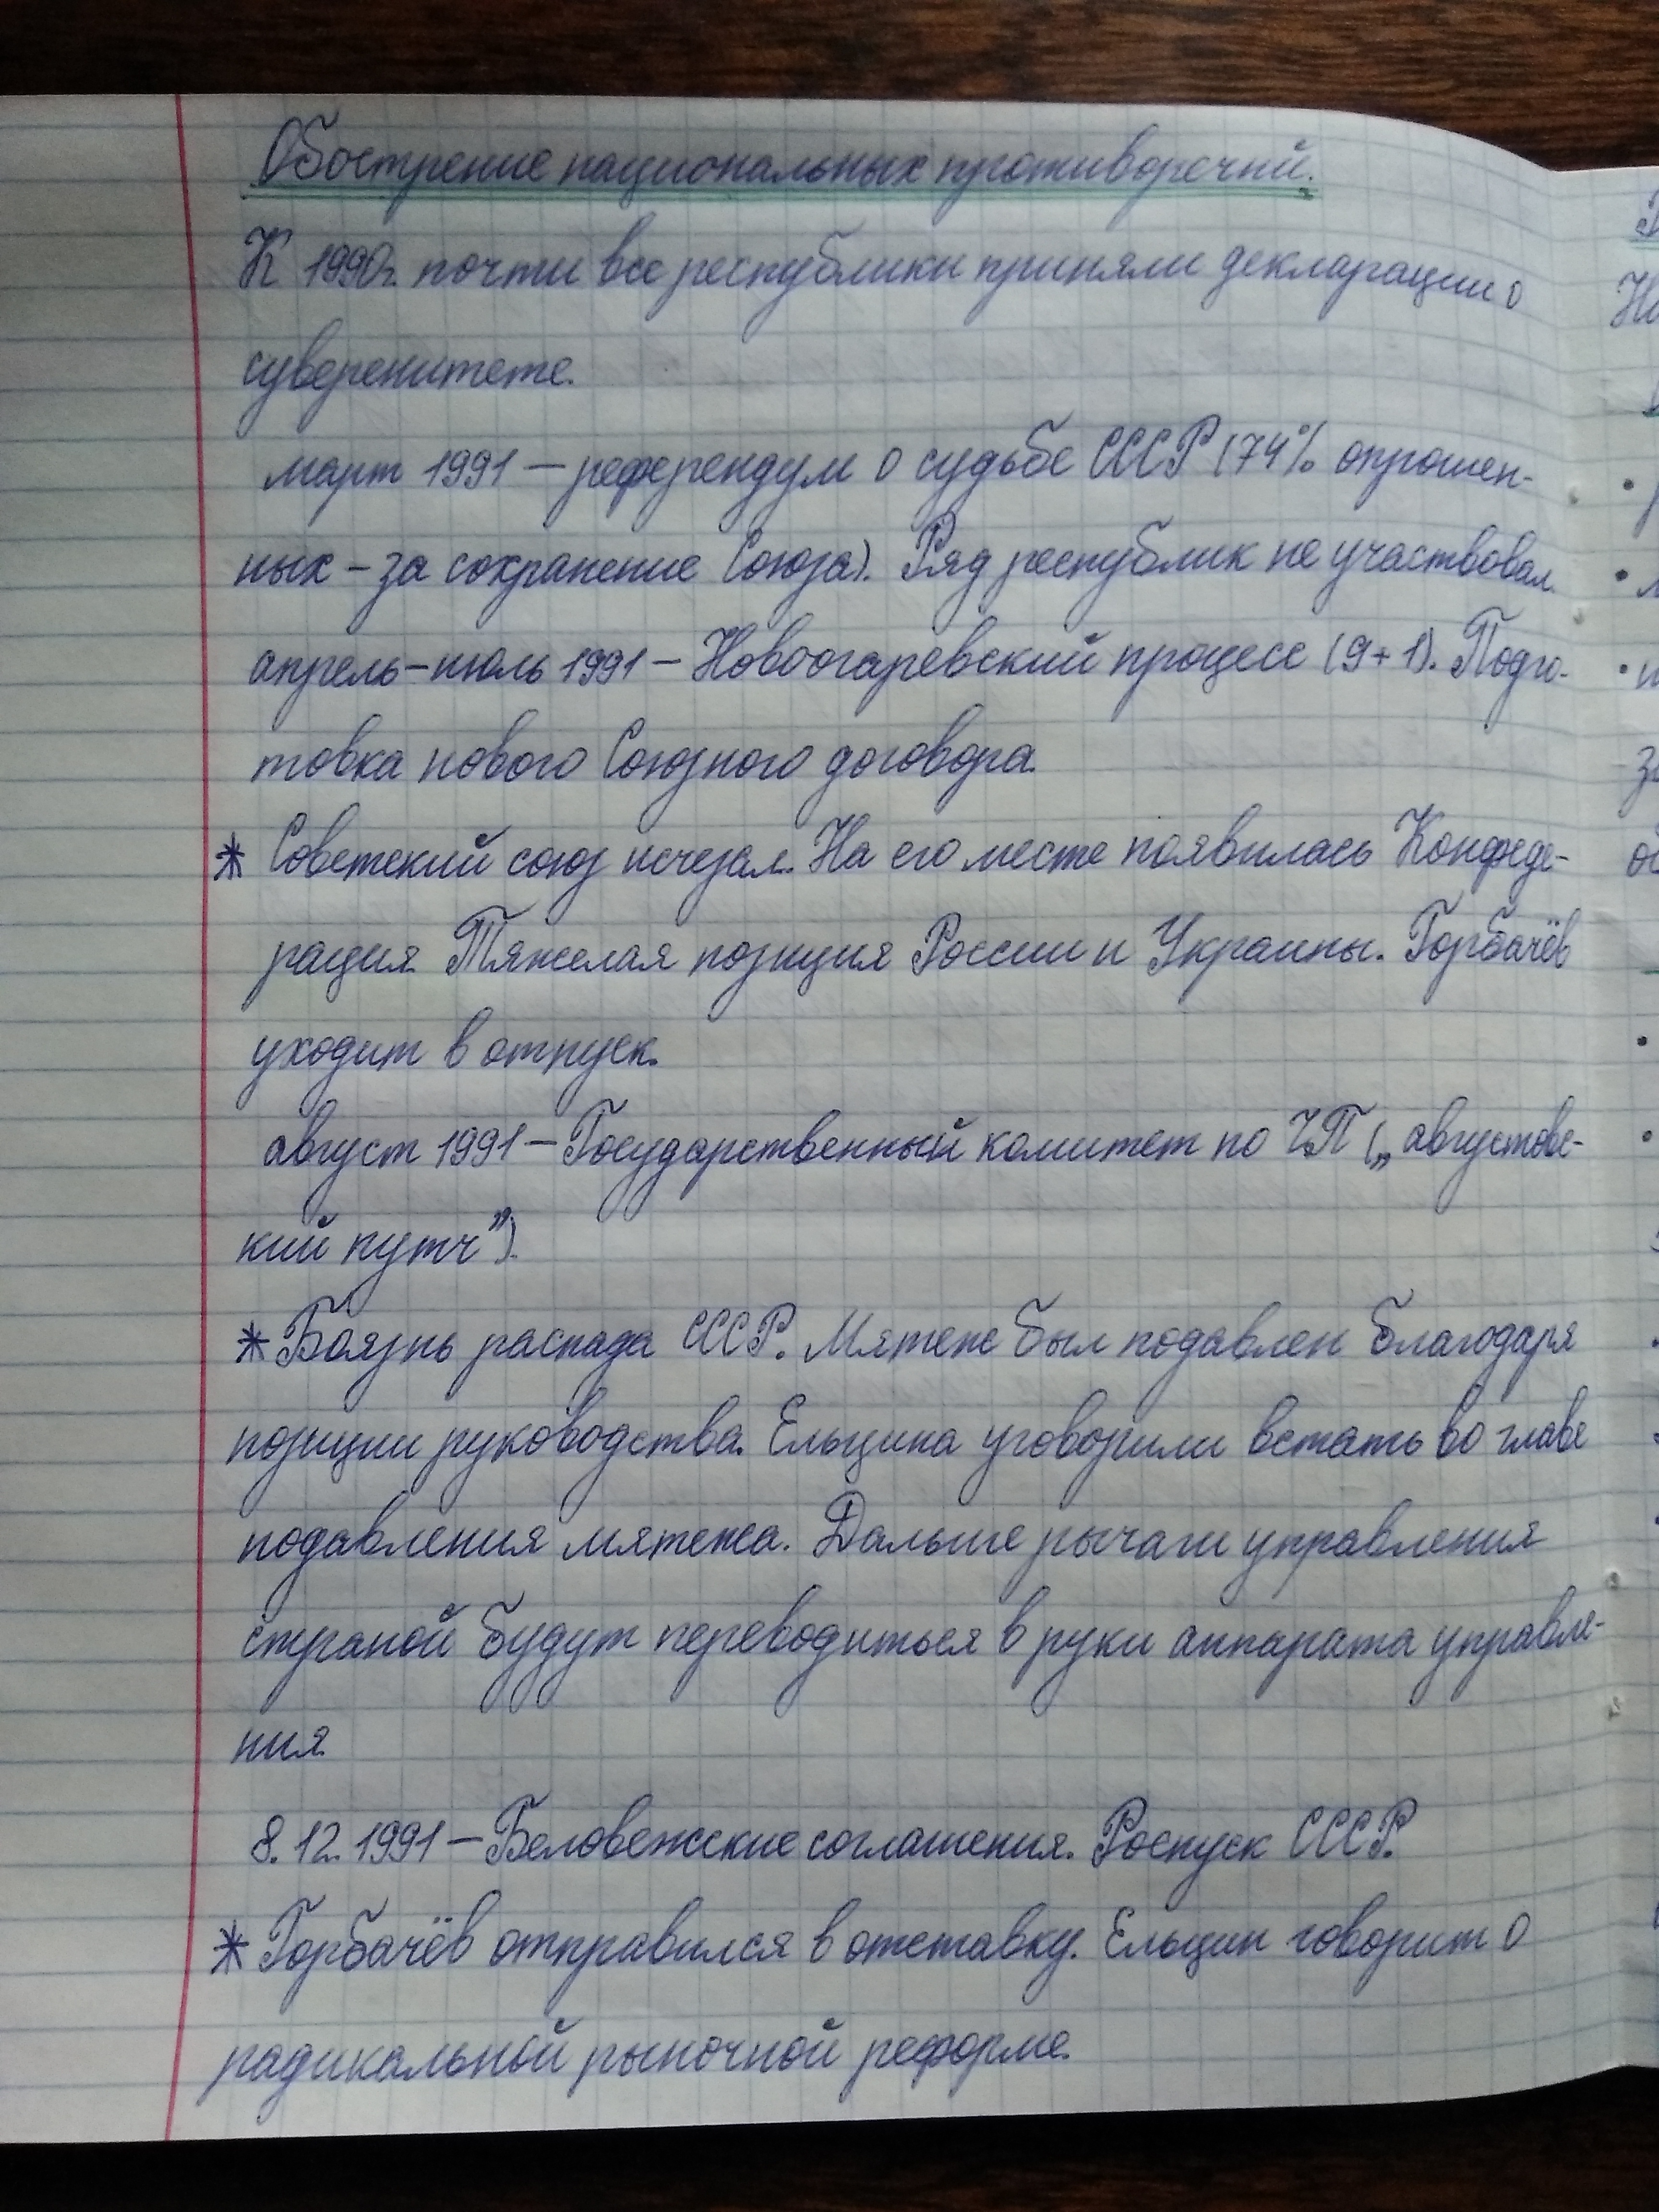 Обострение национальных противоречий.
К 1990г. почти все республики приняли декларации о
суверенитете.
март 1991 – референдум о судьбе СССР (74% опрошен-
ных – за сохранение Союза). Ряд республик не участвовал.
апрель–июль 1991 – Новоогаревский процесс (9+1). Подго-
товка нового Союзного договора.
* Советский союз исчезал. На его месте появилась Конфеде-
рация. Тяжелая позиция России и Украины. Горбачёв
уходит в отпуск.
август 1991 – Государственный комитет по ЧП („августовс-
кий путч”).
* Боязнь распада СССР. Мятеж был подавлен благодаря
позиции руководства. Ельцина уговорили встать во главе
подавления мятежа. Дальше рычаги управления
страной будут переводиться в руки аппарата управле-
ния.
8.12.1991 – Беловежские соглашения. Роспуск СССР.
* Горбачёв отправился в отставку. Ельцин говорит о
радикальной рыночной реформе.